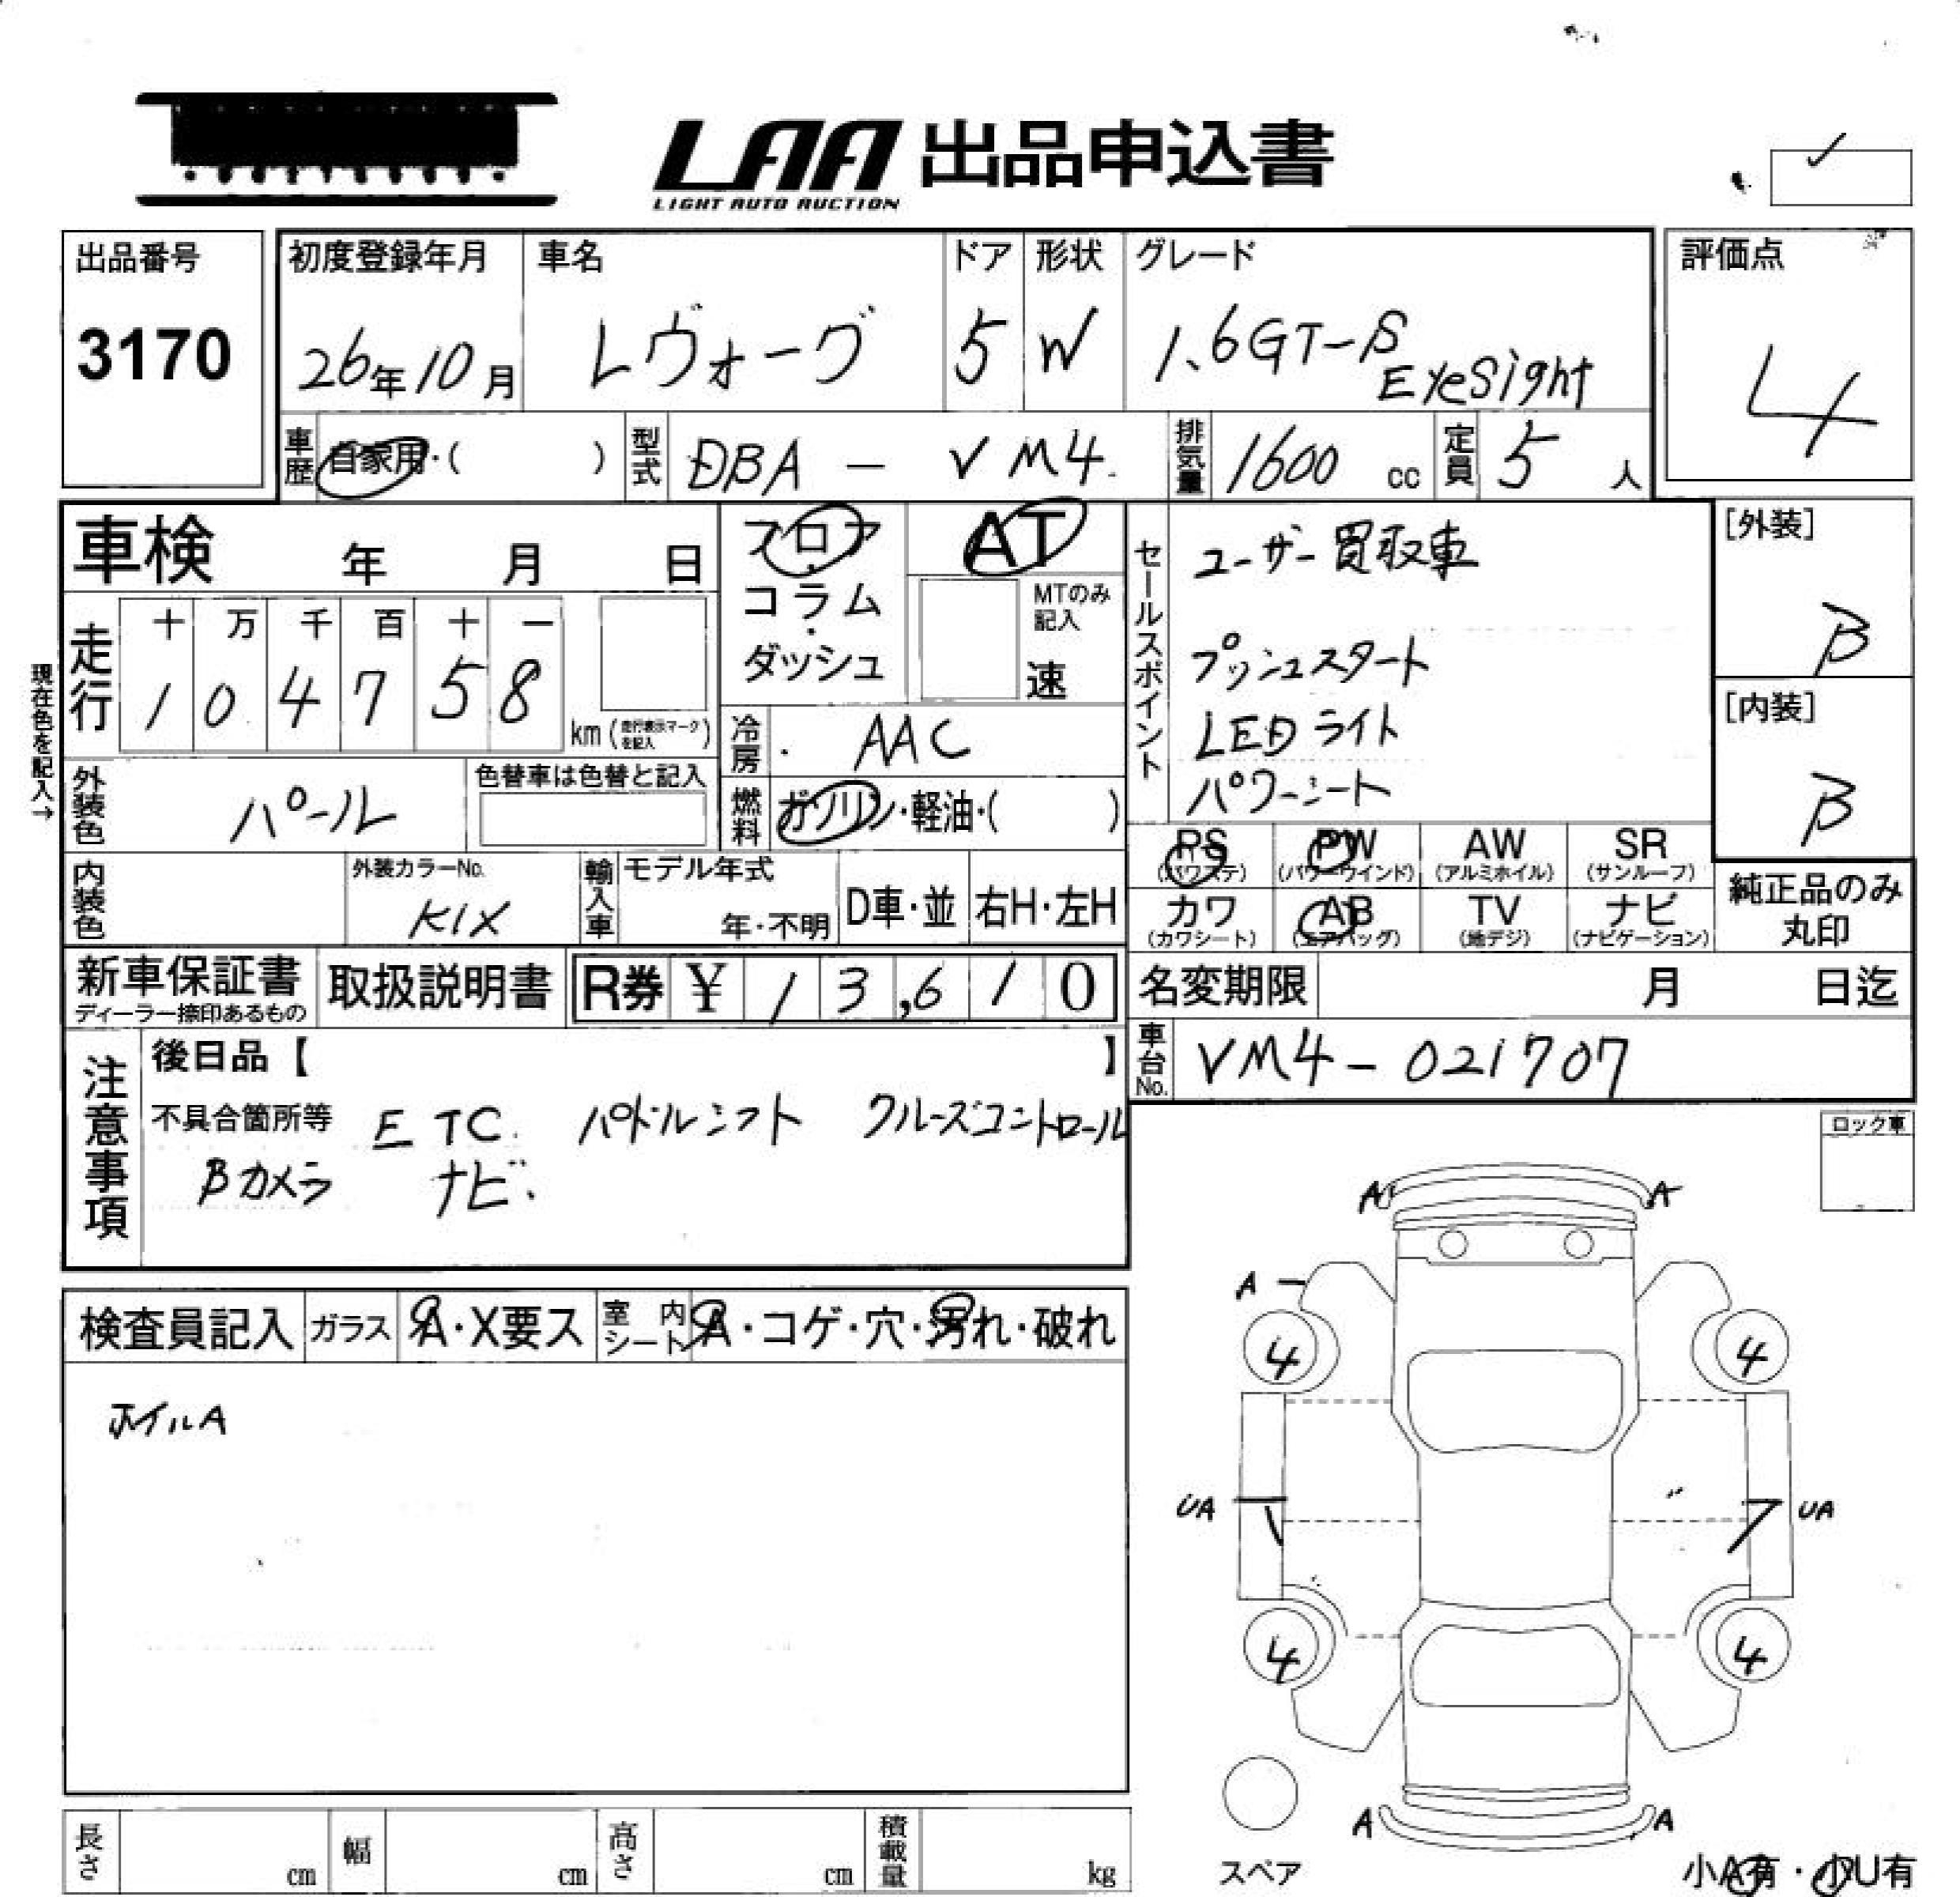 LAA 出品申込書
LIGHT AUTO AUCTION
出品番号
3170
初度登録年月
26年10月
車名
レヴォーグ
ドア
5
形状
W
グレード
1.6GT-S
EyeSight
評価点
4
車歴
自家用・( )
型式
DBA - VM4
排気量
1600 cc
定員
5 人
車検 年 月 日
フロア
・
コラム
・
ダッシュ
AT
MTのみ
記入
速
セールスポイント
ユーザー買取車
プッシュスタート
LEDライト
パワーシート
[外装]
B
[内装]
B
現在色を記入→
走行
十 万 千 百 十 一
1 0 4 7 5 8
km (走行表示マークを記入)
冷房
AAC
外装色
パール
色替車は色替と記入
燃料
ガソリン・軽油・( )
PS
(パワステ)
PW
(パワーウインド)
AW
(アルミホイル)
SR
(サンルーフ)
カワ
(カワシート)
AB
(エアバッグ)
TV
(地デジ)
ナビ
(ナビゲーション)
純正品のみ
丸印
内装色
外装カラーNo.
K1X
輸入車
モデル年式
年・不明
D車・並
右H・左H
新車保証書
ディーラー捺印あるもの
取扱説明書
R券 ¥ 1 3,6 1 0
名変期限 月 日迄
車台No.
VM4-021707
注意事項
後日品【 】
不具合箇所等 ETC パドルシフト クルーズコントロール
Bカメラ ナビ
ロック車
検査員記入
ガラス
A・X要ス
室内
シート
A・コゲ・穴・汚れ・破れ
ホイルA
A A
A
4 4
UA UA
4 4
A A
スペア
小A有・小U有
長さ cm
幅 cm
高さ cm
積載量 kg